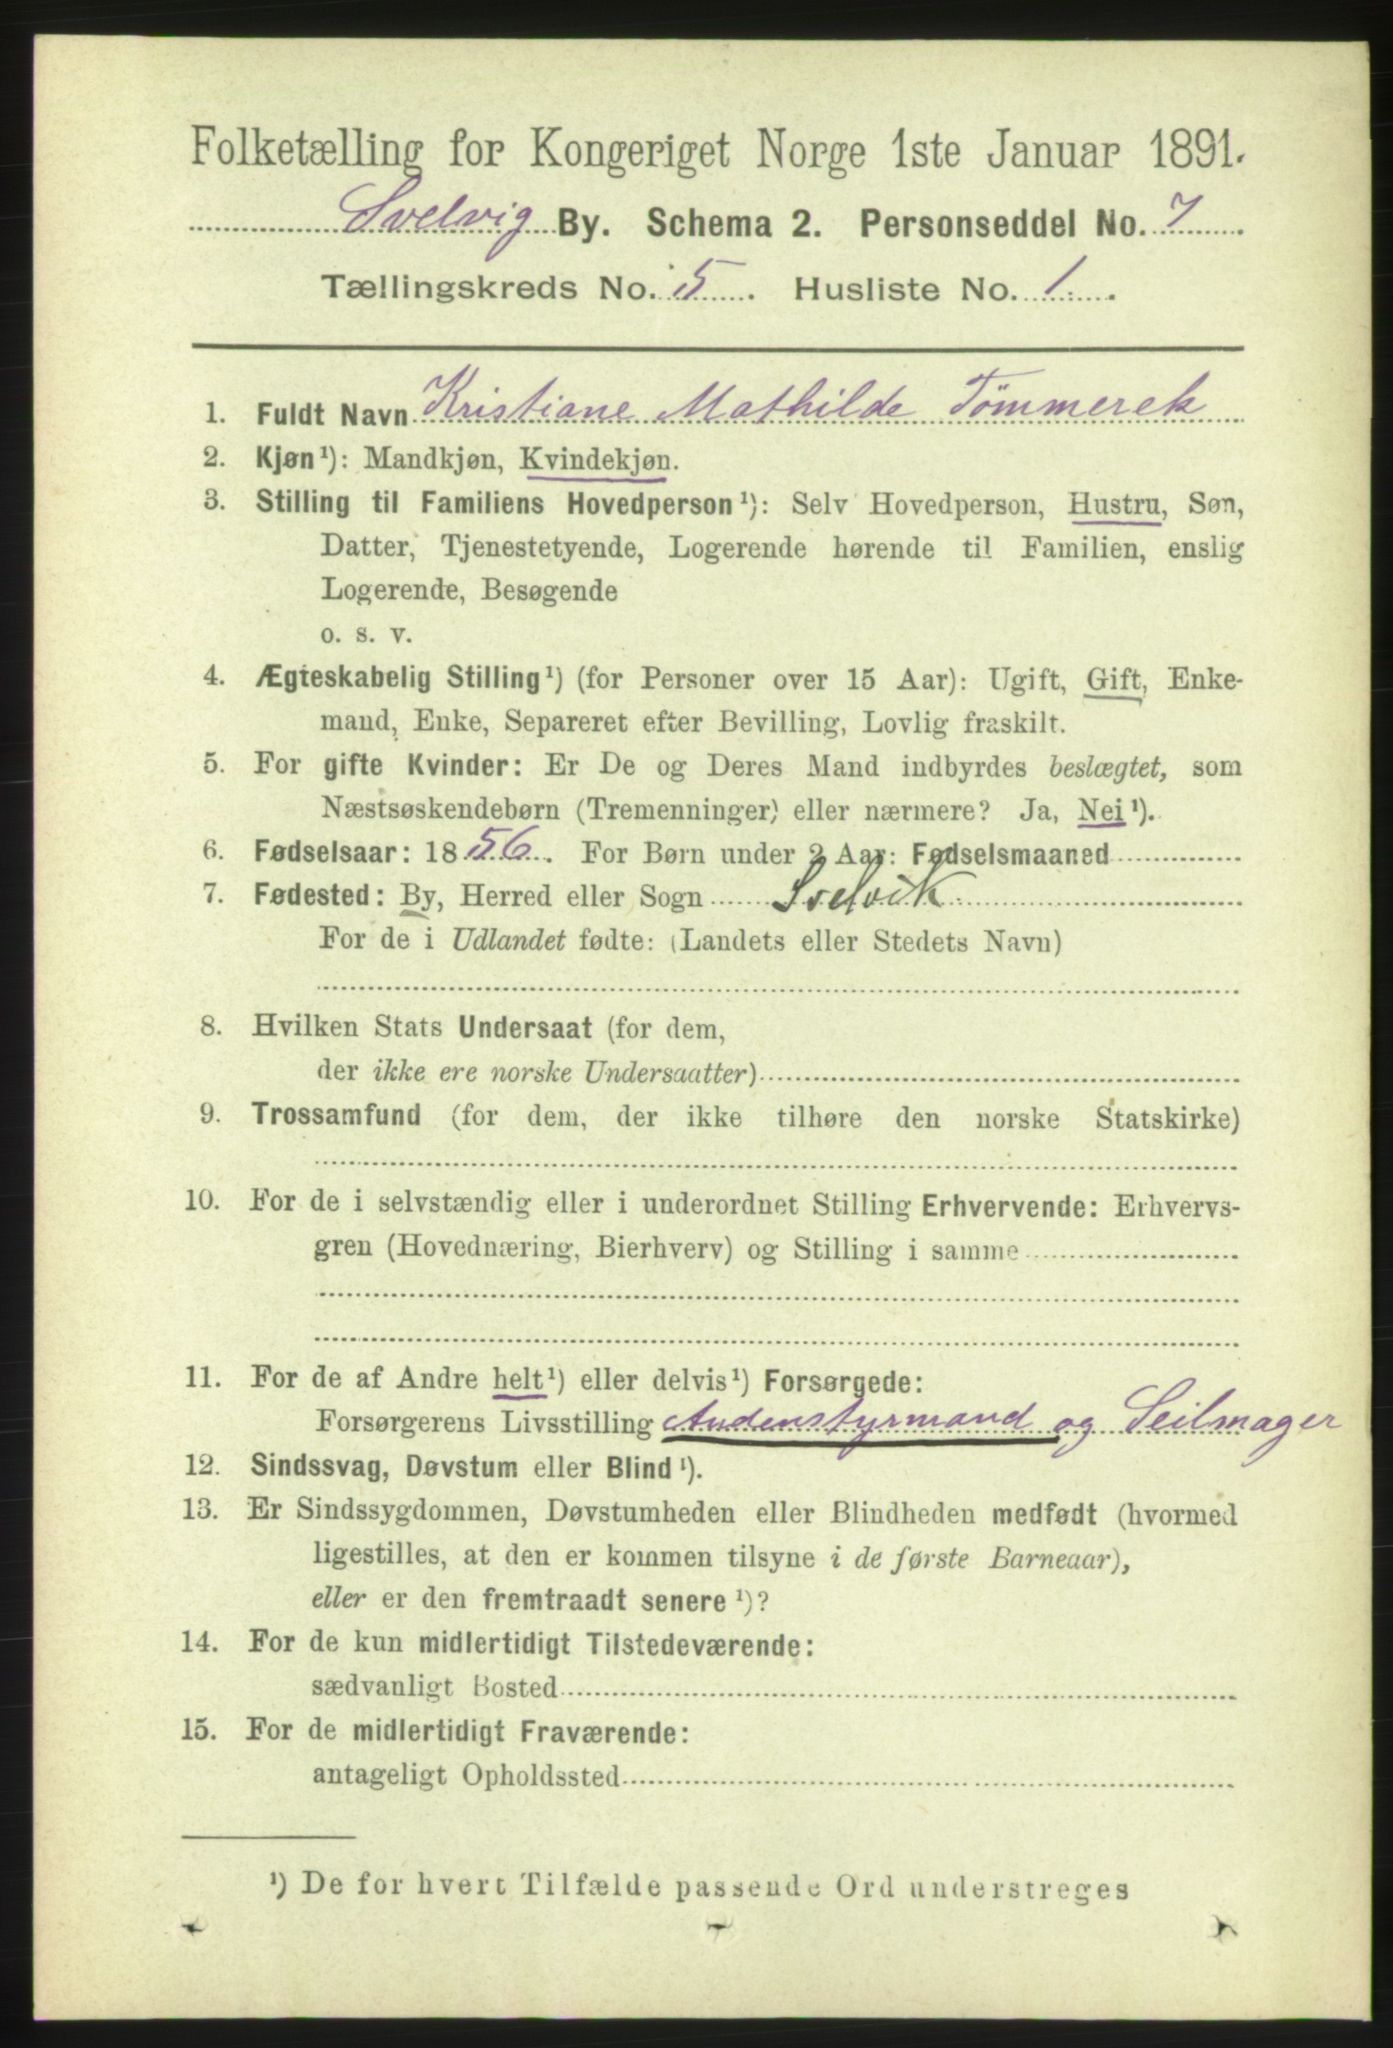 Folketælling for Kongeriget Norge 1ste Januar 1891.
Svelvig By. Schema 2. Personseddel No. 7
Tællingskreds No. 5. Husliste No. 1.
1. Fuldt Navn Kristiane Mathilde Tömmerek
2. Kjøn¹): Mandkjøn, Kvindekjøn.
3. Stilling til Familiens Hovedperson¹): Selv Hovedperson, Hustru, Søn,
Datter, Tjenestetyende, Logerende hørende til Familien, enslig
Logerende, Besøgende
o. s. v.
4. Ægteskabelig Stilling¹) (for Personer over 15 Aar): Ugift, Gift, Enke-
mand, Enke, Separeret efter Bevilling, Lovlig fraskilt.
5. For gifte Kvinder: Er De og Deres Mand indbyrdes beslægtet, som
Næstsøskendebørn (Tremenninger) eller nærmere? Ja, Nei¹).
6. Fødselsaar: 1856. For Børn under 2 Aar: Fødselsmaaned
7. Fødested: By, Herred eller Sogn Svelvik
For de i Udlandet fødte: (Landets eller Stedets Navn)
8. Hvilken Stats Undersaat (for dem,
der ikke ere norske Undersaatter)
9. Trossamfund (for dem, der ikke tilhøre den norske Statskirke)
10. For de i selvstændig eller i underordnet Stilling Erhvervende: Erhvervs-
gren (Hovednæring, Bierhverv) og Stilling i samme
11. For de af Andre helt¹) eller delvis¹) Forsørgede:
Forsørgerens Livsstilling Andenstyrmand og Seilmager
12. Sindssvag, Døvstum eller Blind¹).
13. Er Sindssygdommen, Døvstumheden eller Blindheden medfødt (hvormed
ligestilles, at den er kommen tilsyne i de første Barneaar),
eller er den fremtraadt senere¹)?
14. For de kun midlertidigt Tilstedeværende:
sædvanligt Bosted
15. For de midlertidigt Fraværende:
antageligt Opholdssted
¹) De for hvert Tilfælde passende Ord understreges